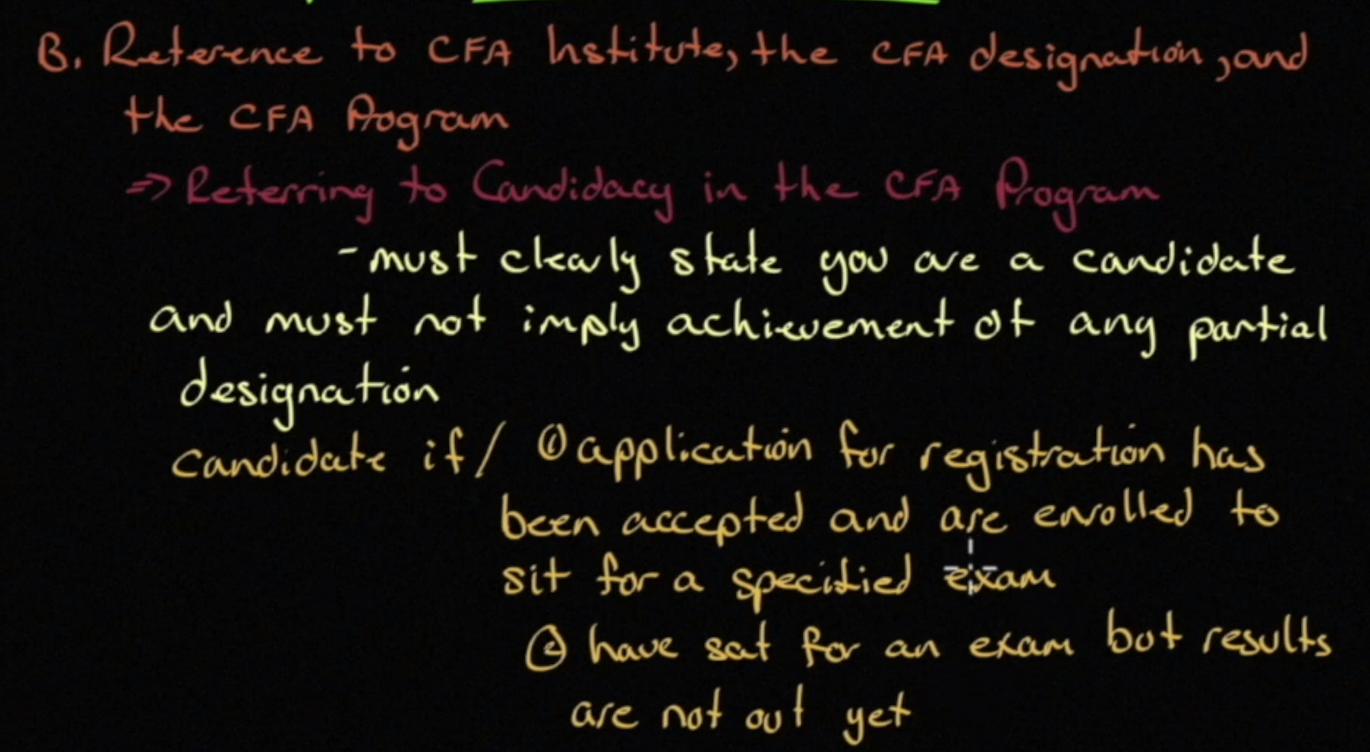 B. Reference to CFA Institute, the CFA designation, and
the CFA Program
=> Referring to Candidacy in the CFA Program
- must clearly state you are a candidate
and must not imply achievement of any partial
designation
candidate if / ① application for registration has
been accepted and are enrolled to
sit for a specified exam
② have sat for an exam but results
are not out yet